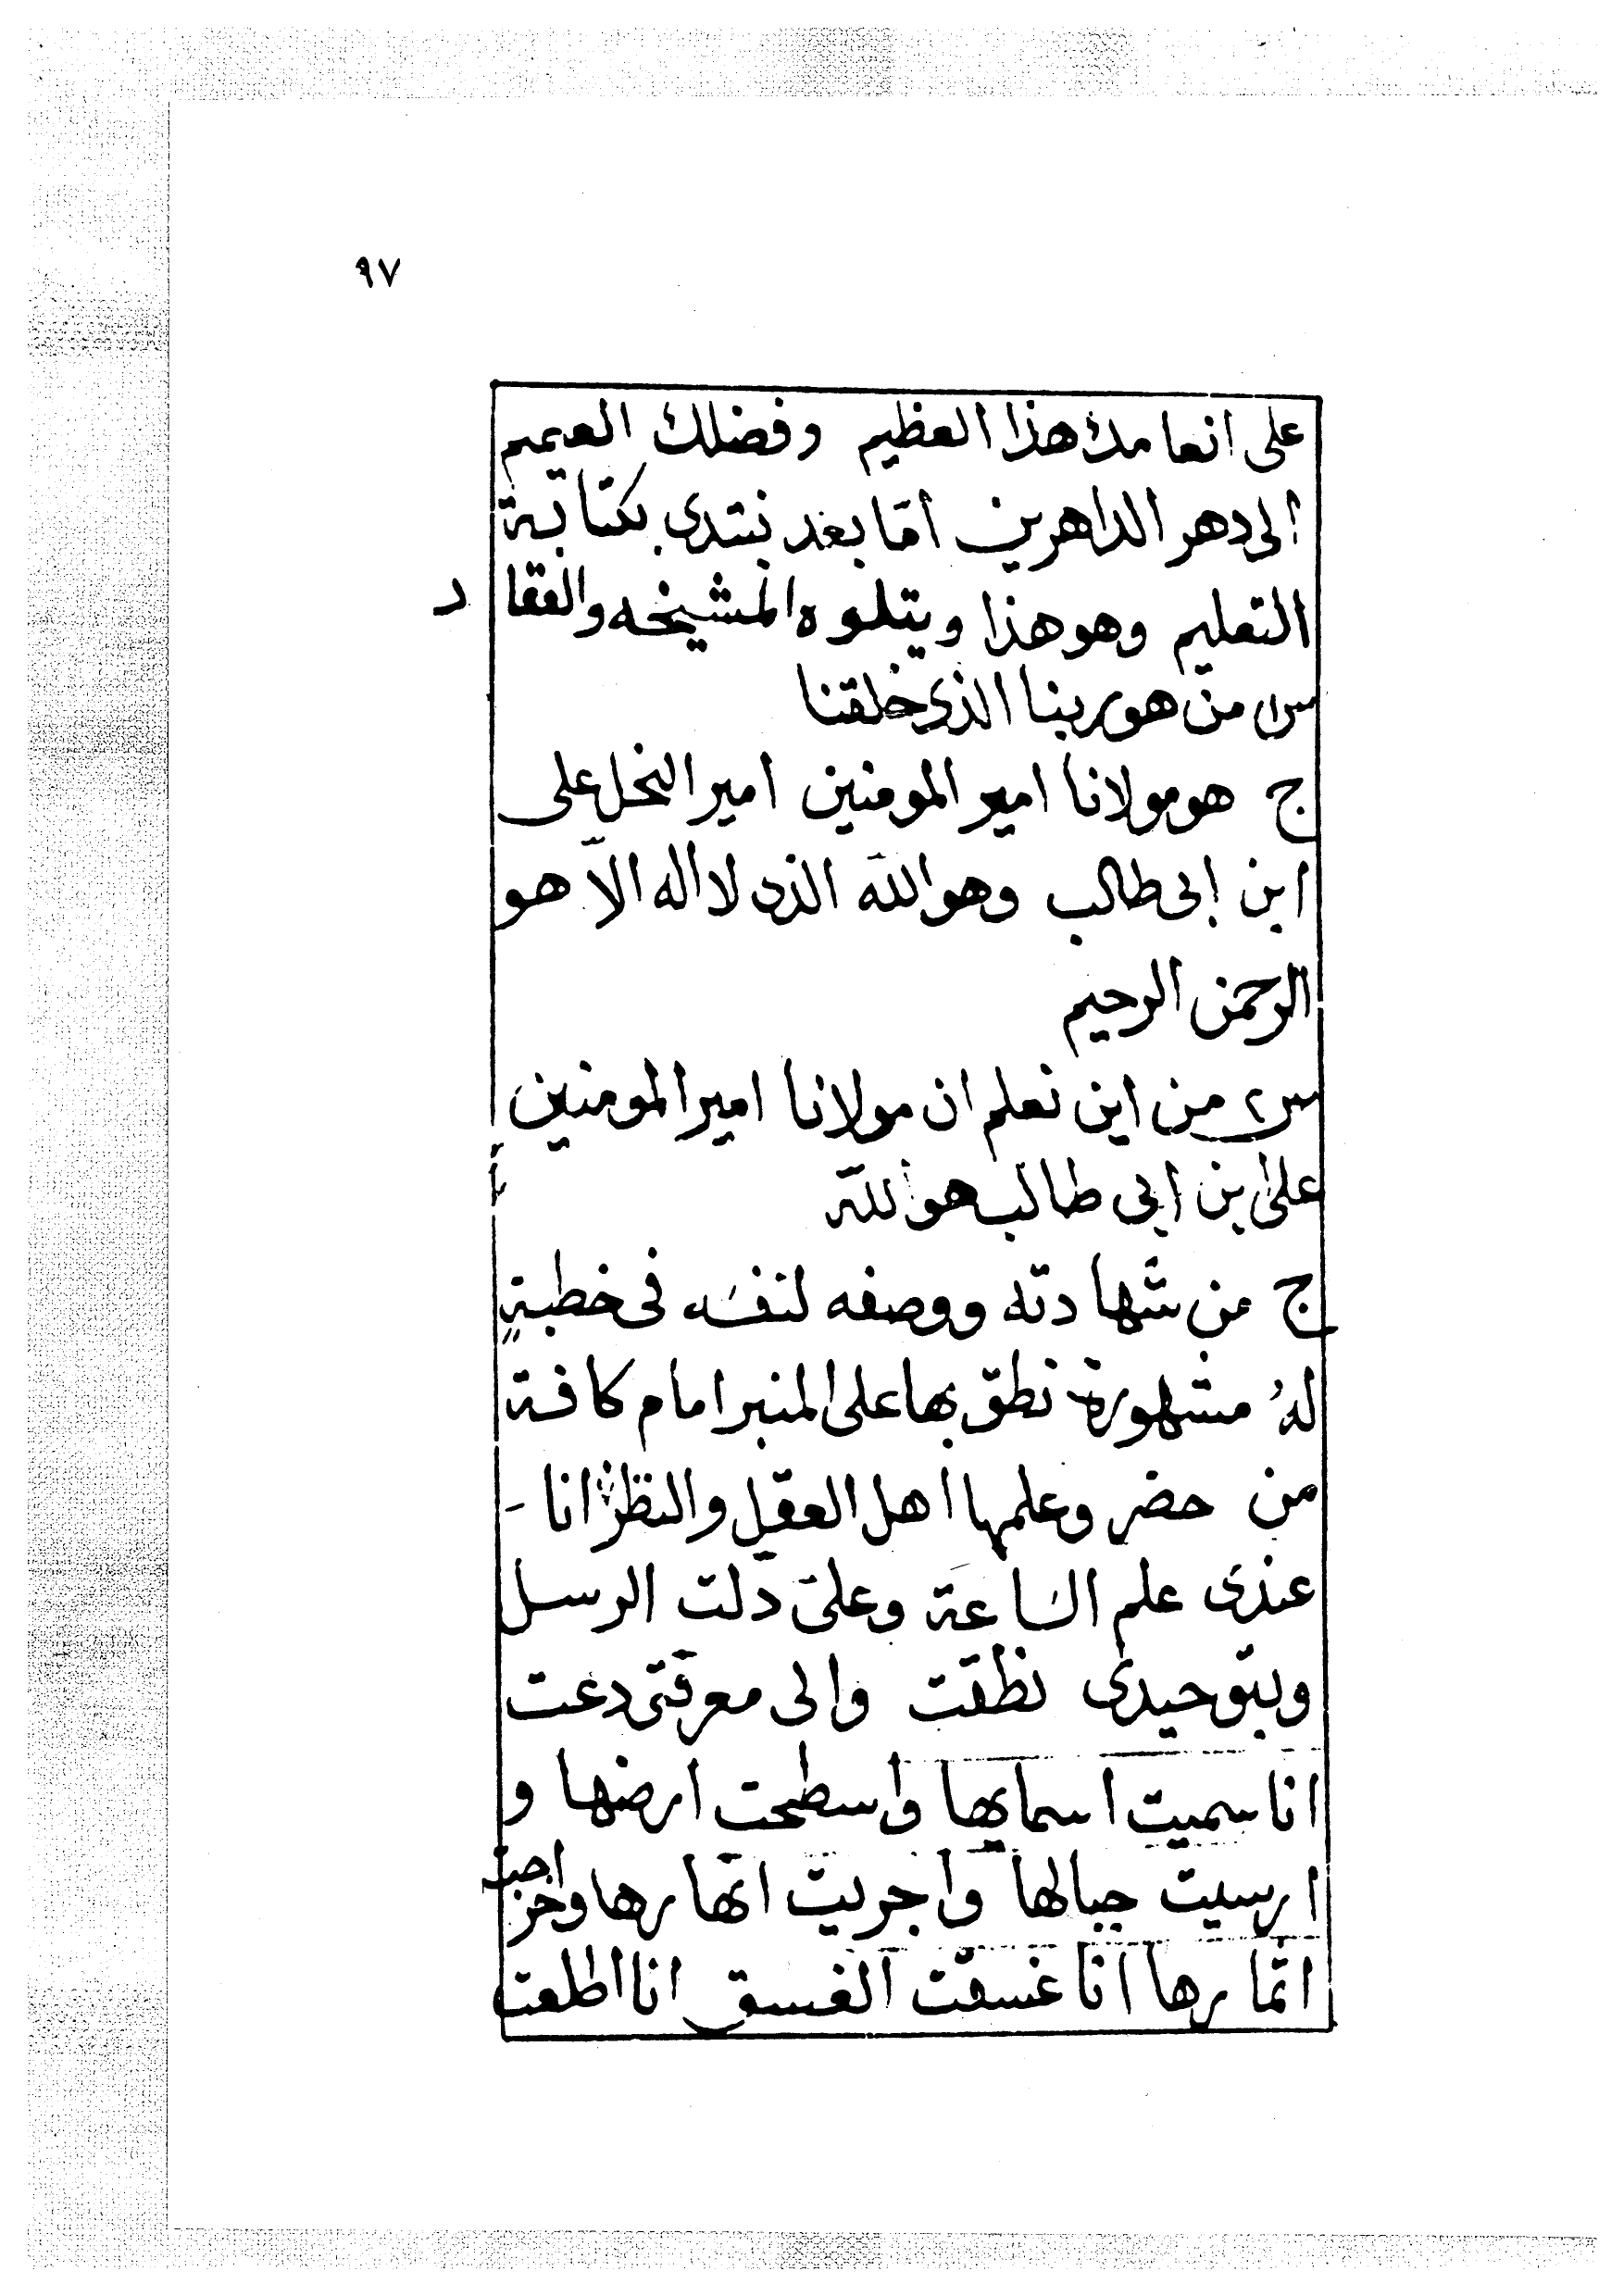 ٩٧
على انعامك هذا العظيم وفضلك العميم
الى دهر الداهرين امّا بعد نبتدى بكتابة
التعليم وهو هذا ويتلوه المشيخه والفقا د
س١ من هو ربنا الذى خلقنا
ج هو مولانا امير المومنين امير النحل على
ابن ابى طالب وهو اللّه الذى لا اله الّا هو
الرحمن الرحيم
س٢ من اين نعلم ان مولانا امير المومنين
على ابن ابى طالب هو اللّه
ج من شهادته ووصفه لنفسه فى خطبةٍ
لهُ مشهورة نطق بها على المنبر امام كافة
من حضر وعلمها اهل العقل والنظر انا -
عندى علم الساعة وعلىّ دلّت الرسل
وبتوحيدى نطقت والى معرفتى دعت
انا سميت اسمايها واسطحت ارضها و
ارسيت جبالها واجريت انهارها واخرجت
اثمارها انا غسقت الغسق انا اطلعت